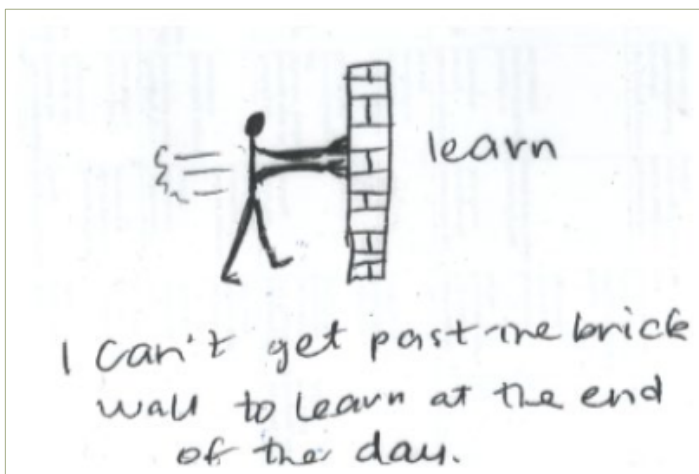 learn
I can't get past the brick
wall to learn at the end
of the day.